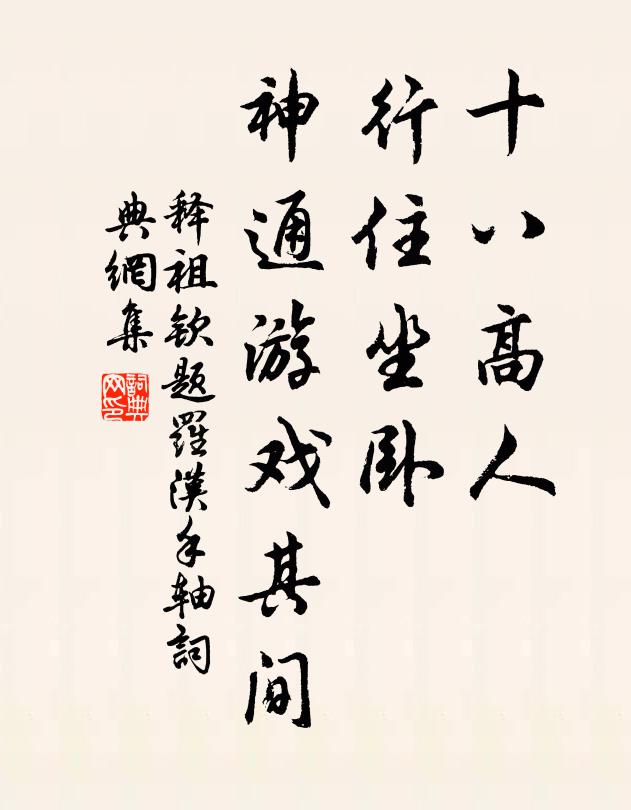 十八高人
行住坐卧
神通游戏其间
释祖钦题羅漢手轴詞
典網集
詞典网印